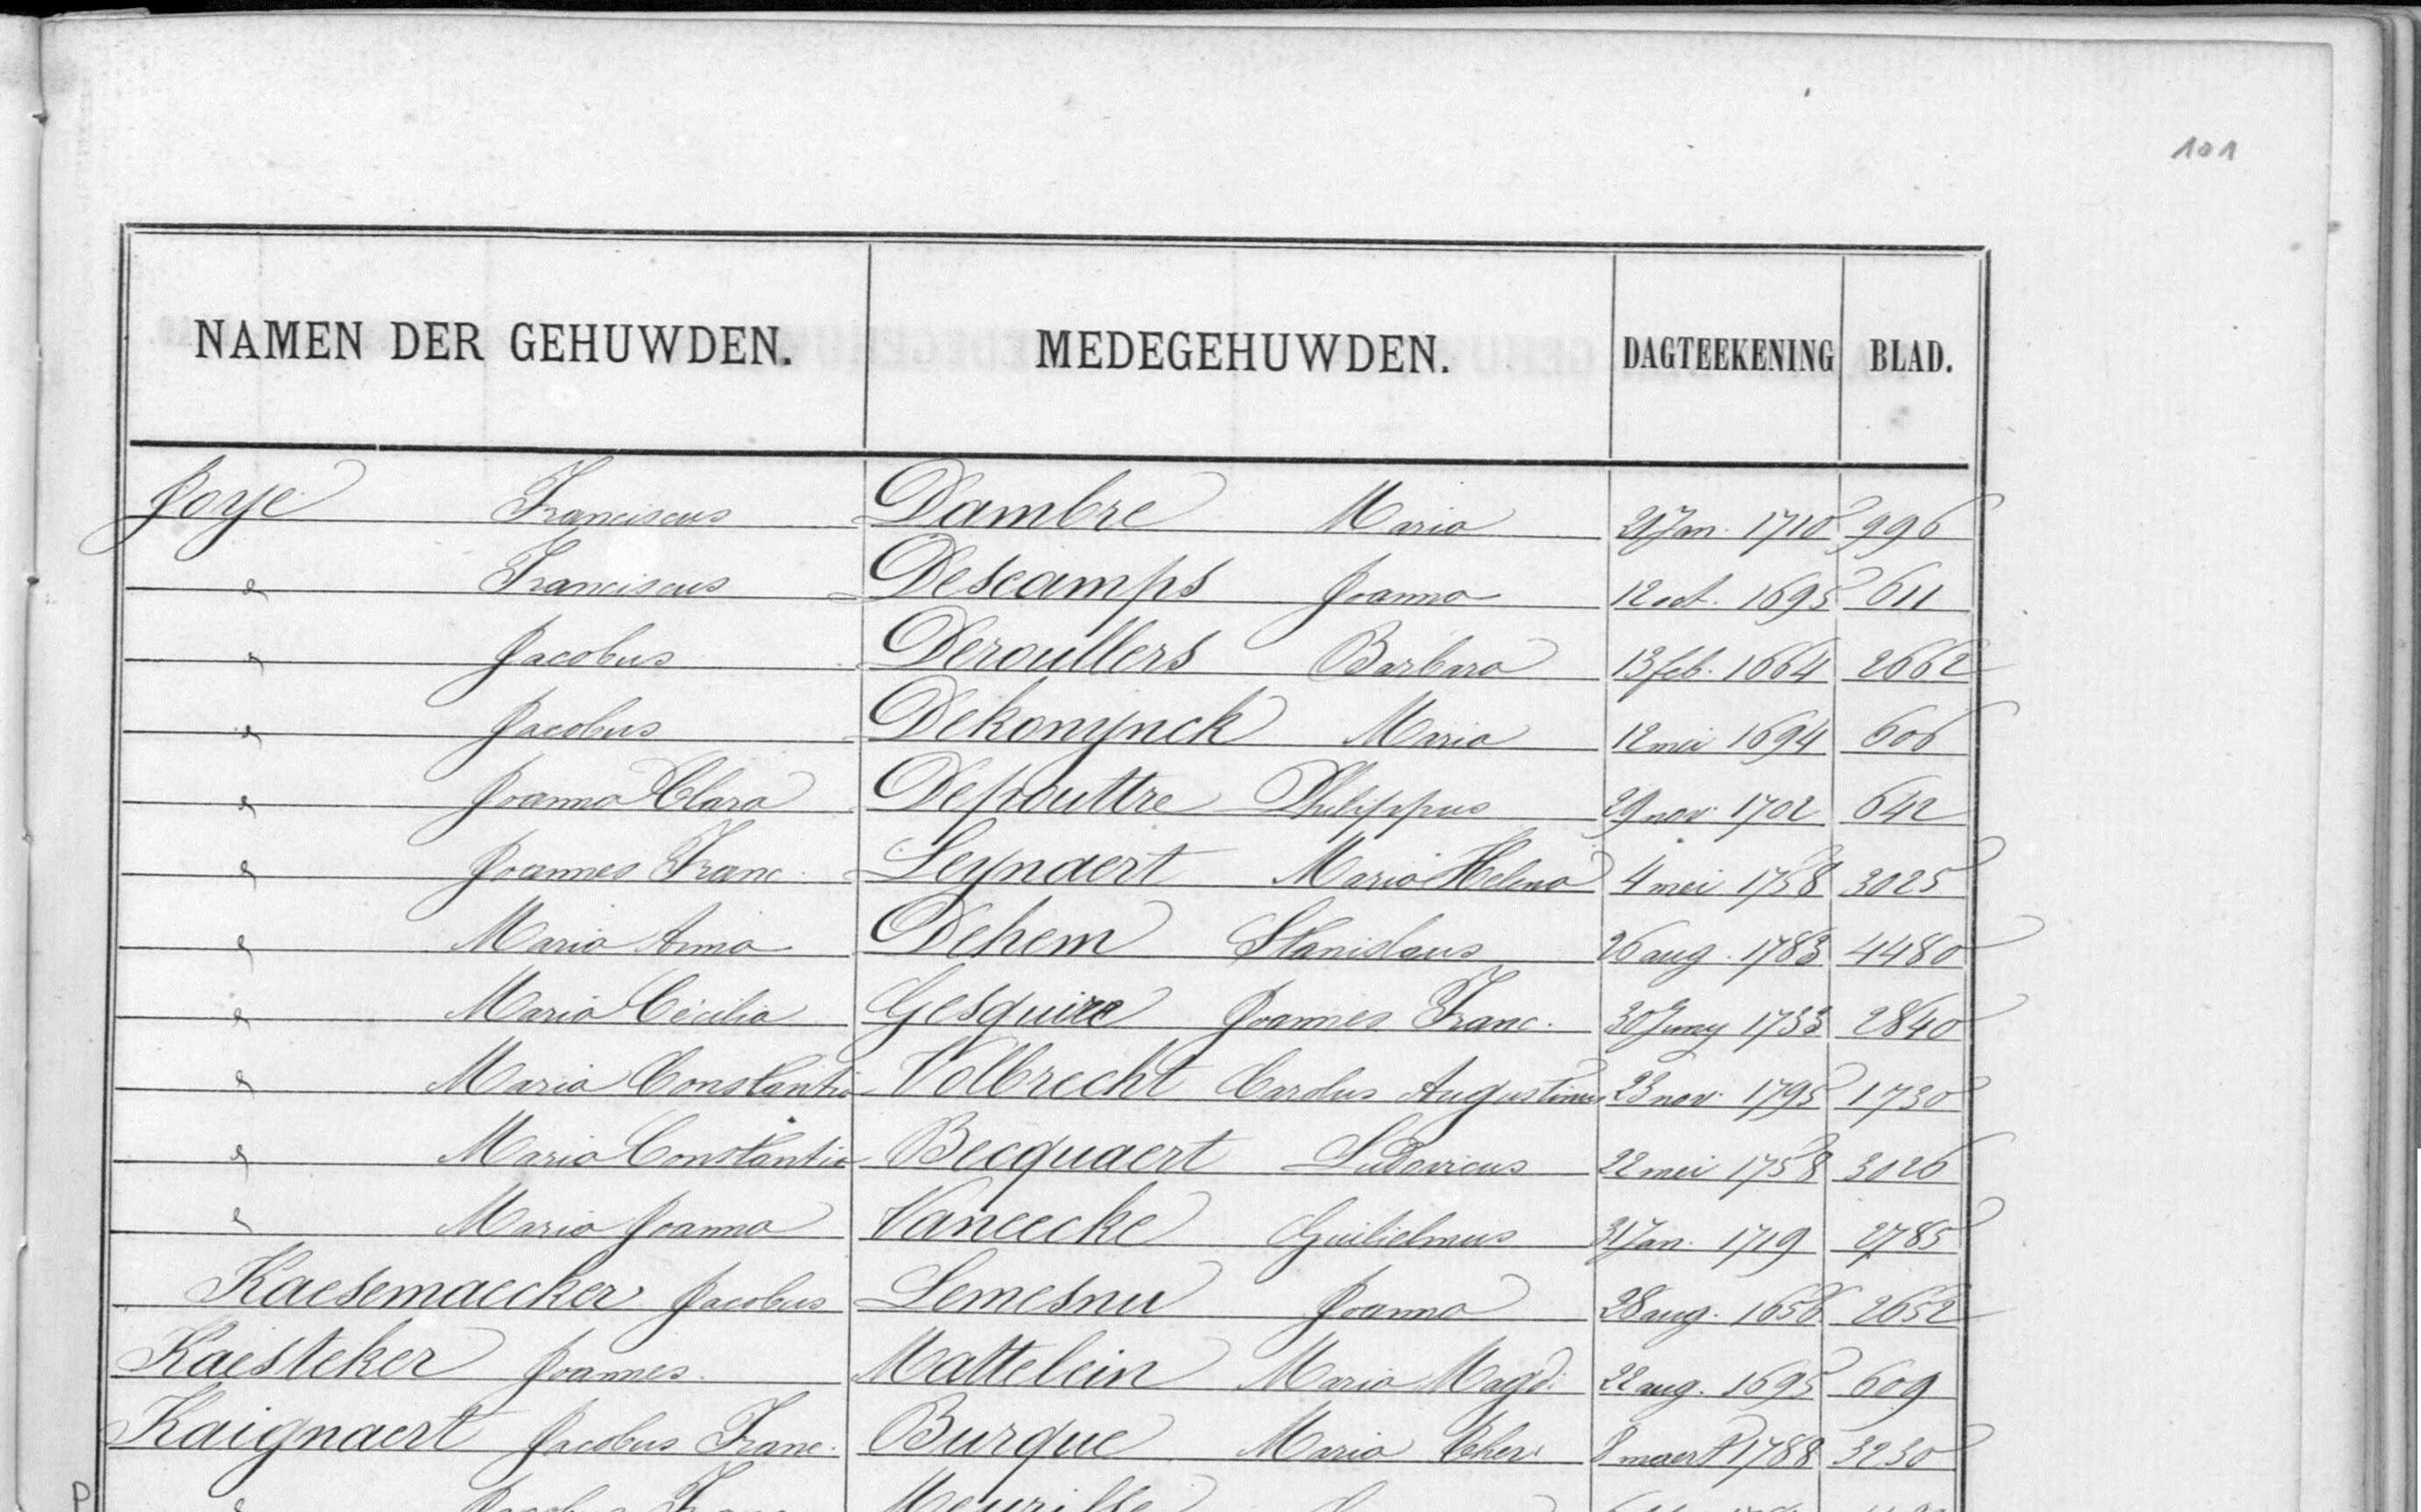 101
NAMEN DER GEHUWDEN. MEDEGEHUWDEN. DAGTEEKENING BLAD.
Joye Franciscus Dambre Maria 21 Jan. 1710 996
" Franciscus Descamps Joanna 12 oct. 1695 611
" Jacobus Deroullers Barbara 13 feb. 1664 2662
" Jacobus Dekonynck Maria 12 mei 1694 606
" Joanna Clara Depouttre Philippus 29 nov. 1702 642
" Joannes Franc. Leynaert Maria Helena 4 mei 1758 3025
" Maria Anna Dehem Stanislaus 26 aug. 1783 4480
" Maria Cecilia Gesquire Joannes Franc. 30 Juny 1733 2840
" Maria Constantia Volbrecht Carolus Augustinus 23 nov. 1795 1730
" Maria Constantia Becquaert Ludovicus 22 mei 1758 3026
" Maria Joanna Vaneecke Guilielmus 31 Jan. 1719 2785
Kaesemaecker Jacobus Lemesnu Joanna 28 aug. 1656 2652
Kaesteker Joannes. Mattelein Maria Magd. 22 aug. 1695 609
Kaignaert Jacobus Franc. Burque Maria Ther. 8 maert 1788 3230
" Jacobus Franc